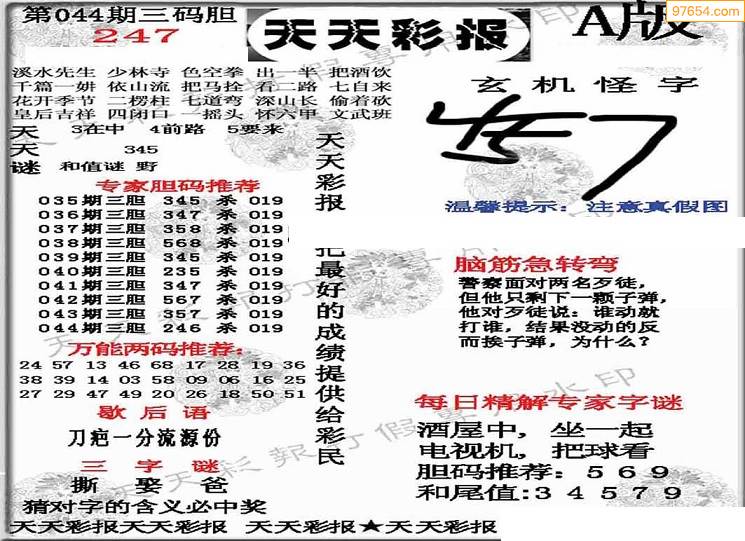 第044期三码胆
247
天天彩报
A版
97654.com
溪水先生 少林寺 色空拳 出一半 把酒饮
千篇一妍 依山流 把马拴 看二路 七自来
花开季节 二楞柱 七道弯 深山长 偷着砍
皇后吉祥 四闭口 一摇头 怀六甲 文武班
天 3在中 4前路 5要来
天 345
谜 和值谜 野
专家胆码推荐
035期三胆 345 杀 019
036期三胆 347 杀 019
037期三胆 358 杀 019
038期三胆 568 杀 019
039期三胆 345 杀 019
040期三胆 235 杀 019
041期三胆 347 杀 019
042期三胆 567 杀 019
043期三胆 357 杀 019
044期三胆 246 杀 019
万能两码推荐:
24 57 13 46 68 17 28 19 36
38 39 14 03 58 09 06 16 25
27 29 47 49 20 26 18 50 51
歇后语
刀疤一分流源份
三字谜
撕 娶 爸
猜对字的含义必中奖
天天彩报天天彩报 天天彩报★天天彩报
天天彩报
把最好的成绩提供给彩民
玄机怪字
457
温馨提示: 注意真假图
脑筋急转弯
警察面对两名歹徒,
但他只剩下一颗子弹,
他对歹徒说: 谁动就
打谁, 结果没动的反
而挨子弹, 为什么?
每日精解专家字谜
酒屋中, 坐一起
电视机, 把球看
胆码推荐: 5 6 9
和尾值:3 4 5 7 9